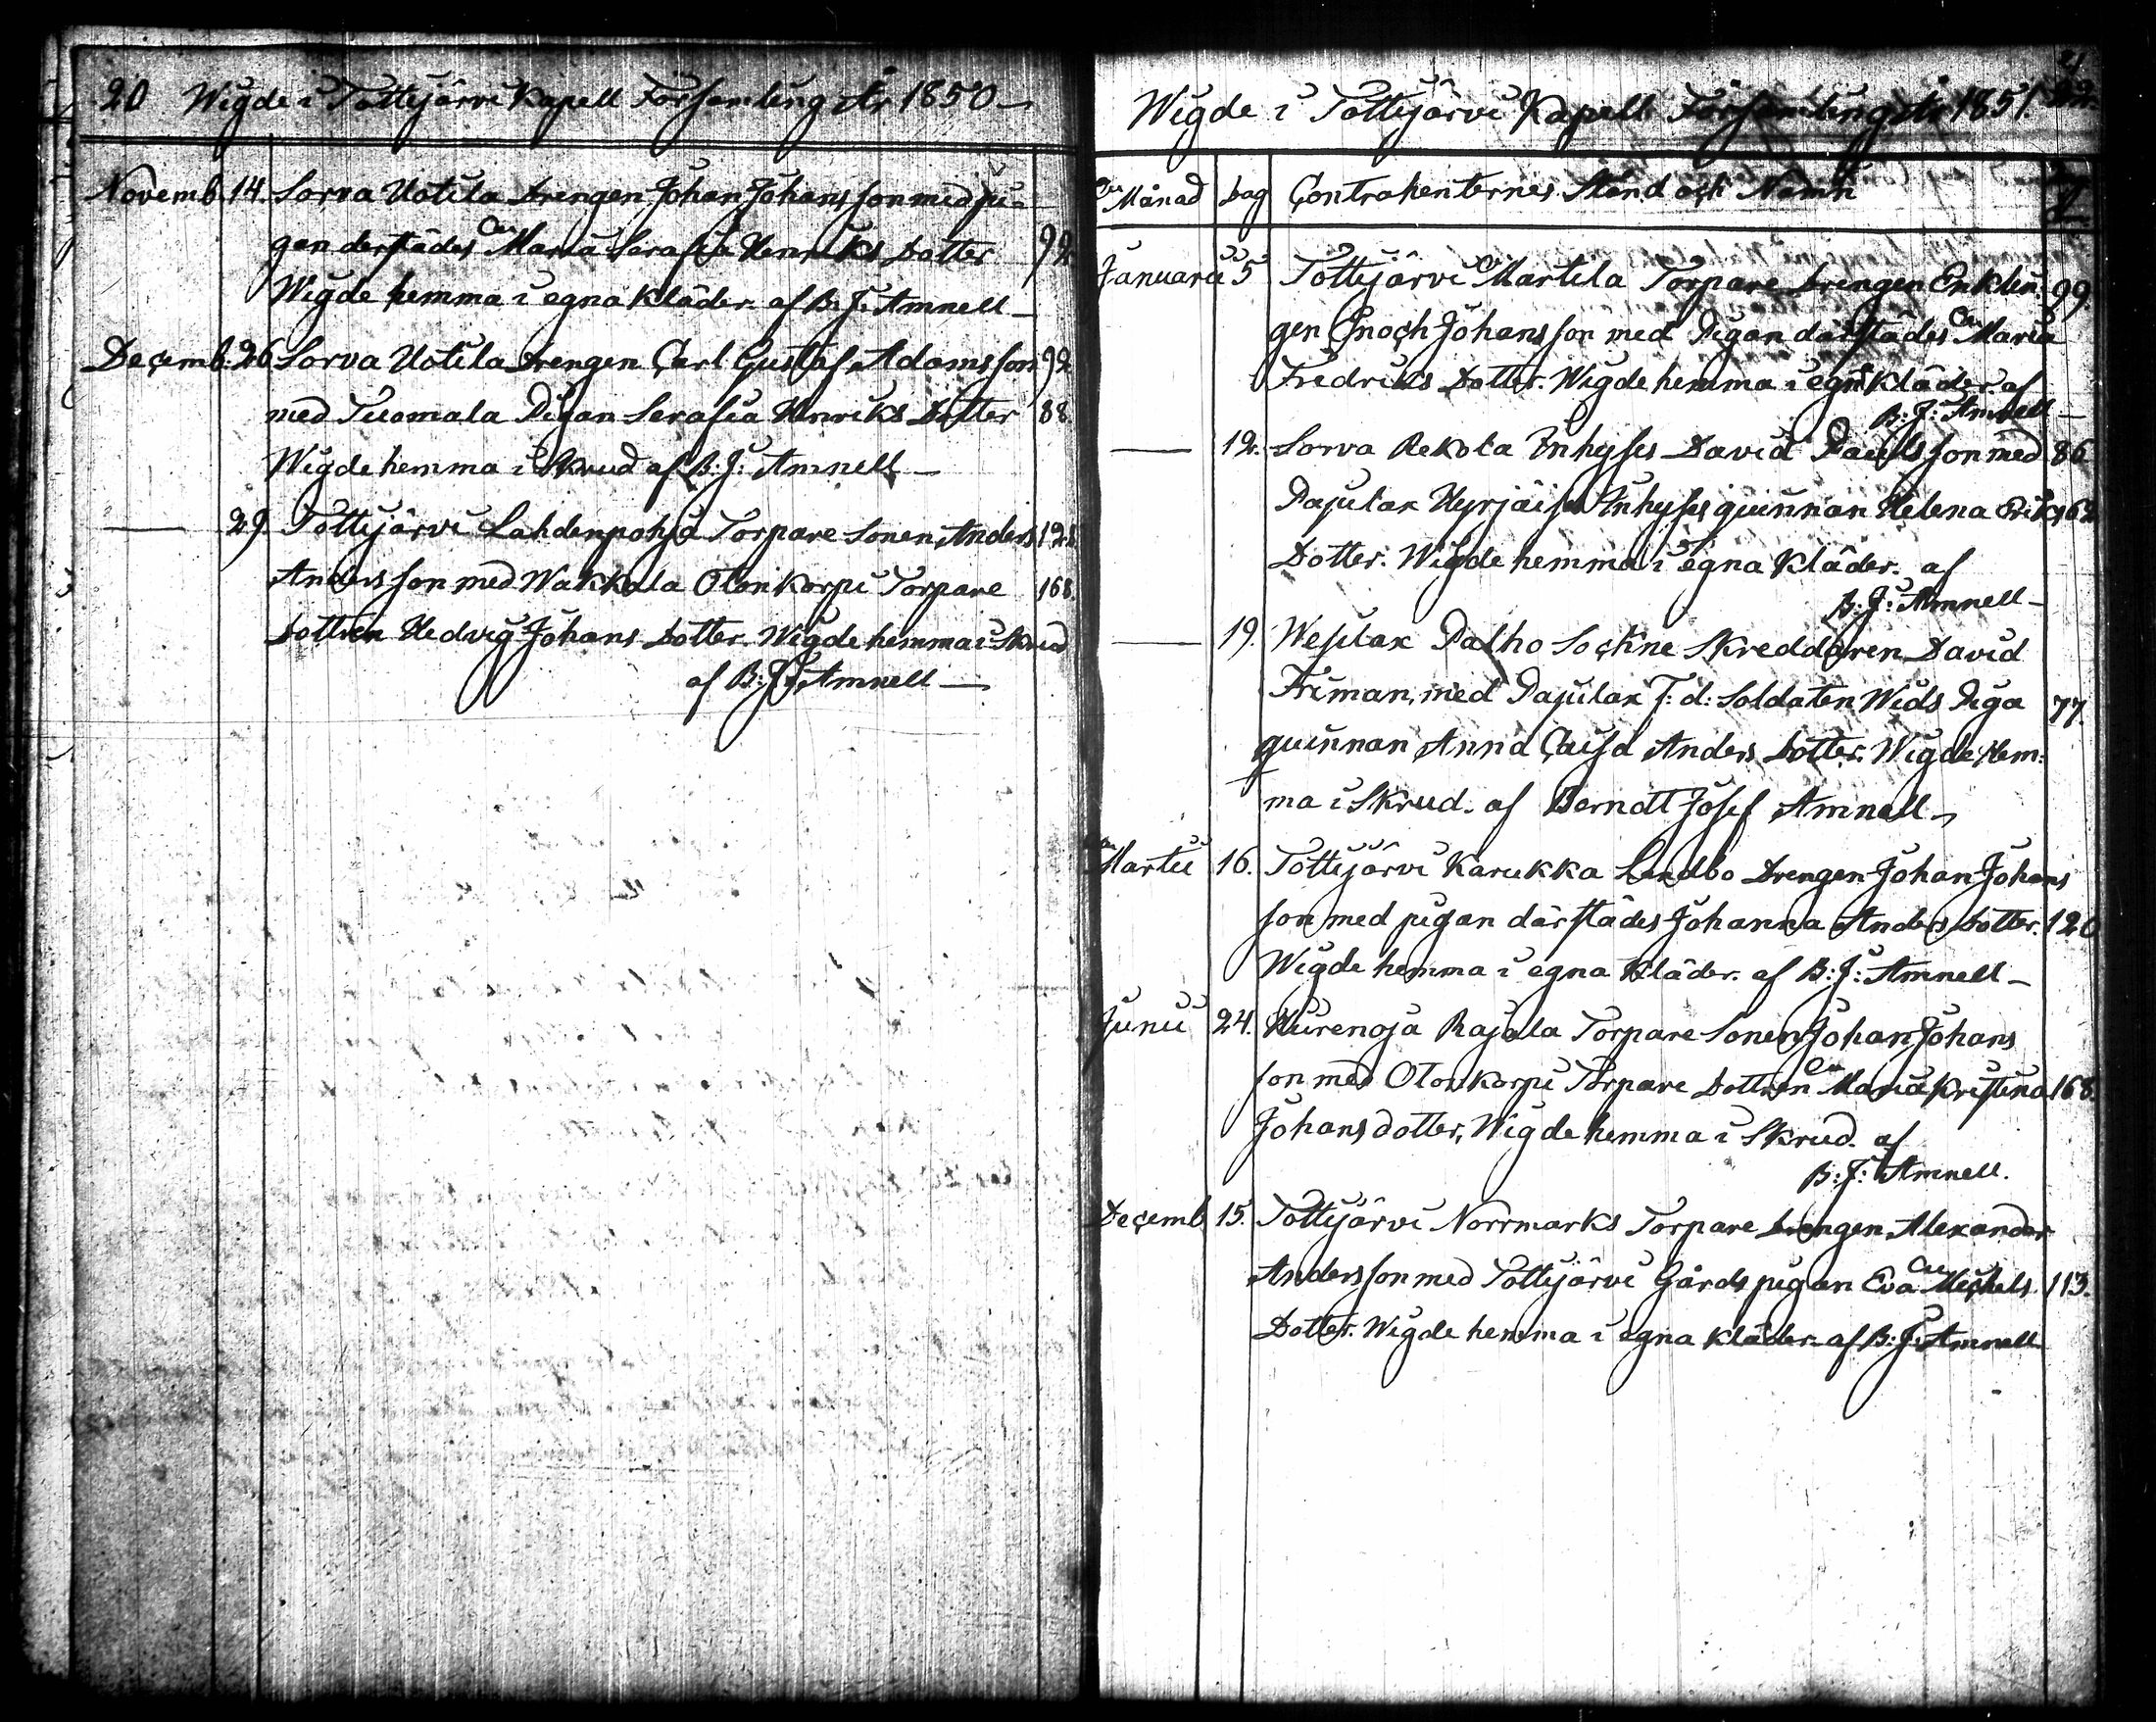 20 Wigde i Tottijärvi Kapell Församling År 1850
Novemb. 14. Sorva Uotila Drengen Johan Johansson med pi-
gan derstädes Maria Serafia Henriks Dotter 92
Wigde hemma i egna Kläder. af B: J: Amnell
Decemb. 26 Sorva Uotila Drengen Carl Gustaf Adamsson 92
med Tuomala Pigan Serafia Henriks Dotter 88.
Wigde hemma i Skrud af B: J: Amnell
29. Tottijärvi Lahdenpohja Torpare Sonen Anders 128
Andersson med Wakkala Olonkorpi Torpare 168.
Dottren Hedvig Johans Dotter. Wigde hemma i Skrud
af B: J: Amnell
Wigde i Tottijärvi Kapell Församling År 1851. 22.
21
Månad Dag Contrahenternes Stånd och Namn
Januarii 5 Tottijärvi Martila Torpare Drengen Enklin- 99.
gen Enoch Johansson med Pigan därstädes Maria
Fredriks Dotter. Wigde hemma i egna Kläder. af
B: J: Amnell
12. Sorva Rekola Inhyses David Paulsson med 86
Pajulax Hyrjäis Inhyses quinnan Helena Eriks 62
Dotter. Wigde hemma i egna Kläder. af
B: J: Amnell
19. Wesilax Palho Sockne Skreddaren David
Friman, med Pajulax F: d: Soldaten Wids Piga 77.
quinnan Anna Caisa Anders Dotter. Wigde Hem-
ma i Skrud. af Berndt Josef Amnell
Martii 16. Tottijärvi Karukka Landbo Drengen Johan Johans
son med pigan därstädes Johanna Anders Dotter. 120
Wigde hemma i egna Kläder. af B: J: Amnell
Junii 24. Hurenoja Rajala Torpare Sonen Johan Johans
son med Olonkorpi Torpare Dottren Maria Kristina 168.
Johansdotter, Wigde hemma i Skrud. af
B: J: Amnell.
Decemb 15. Tottijärvi Norrmarks Torpare Drengen Alexander
Andersson med Tottijärvi Gårds pigan Eva Michels 113.
Dotter. Wigde hemma i egna Kläder. af B: J: Amnell